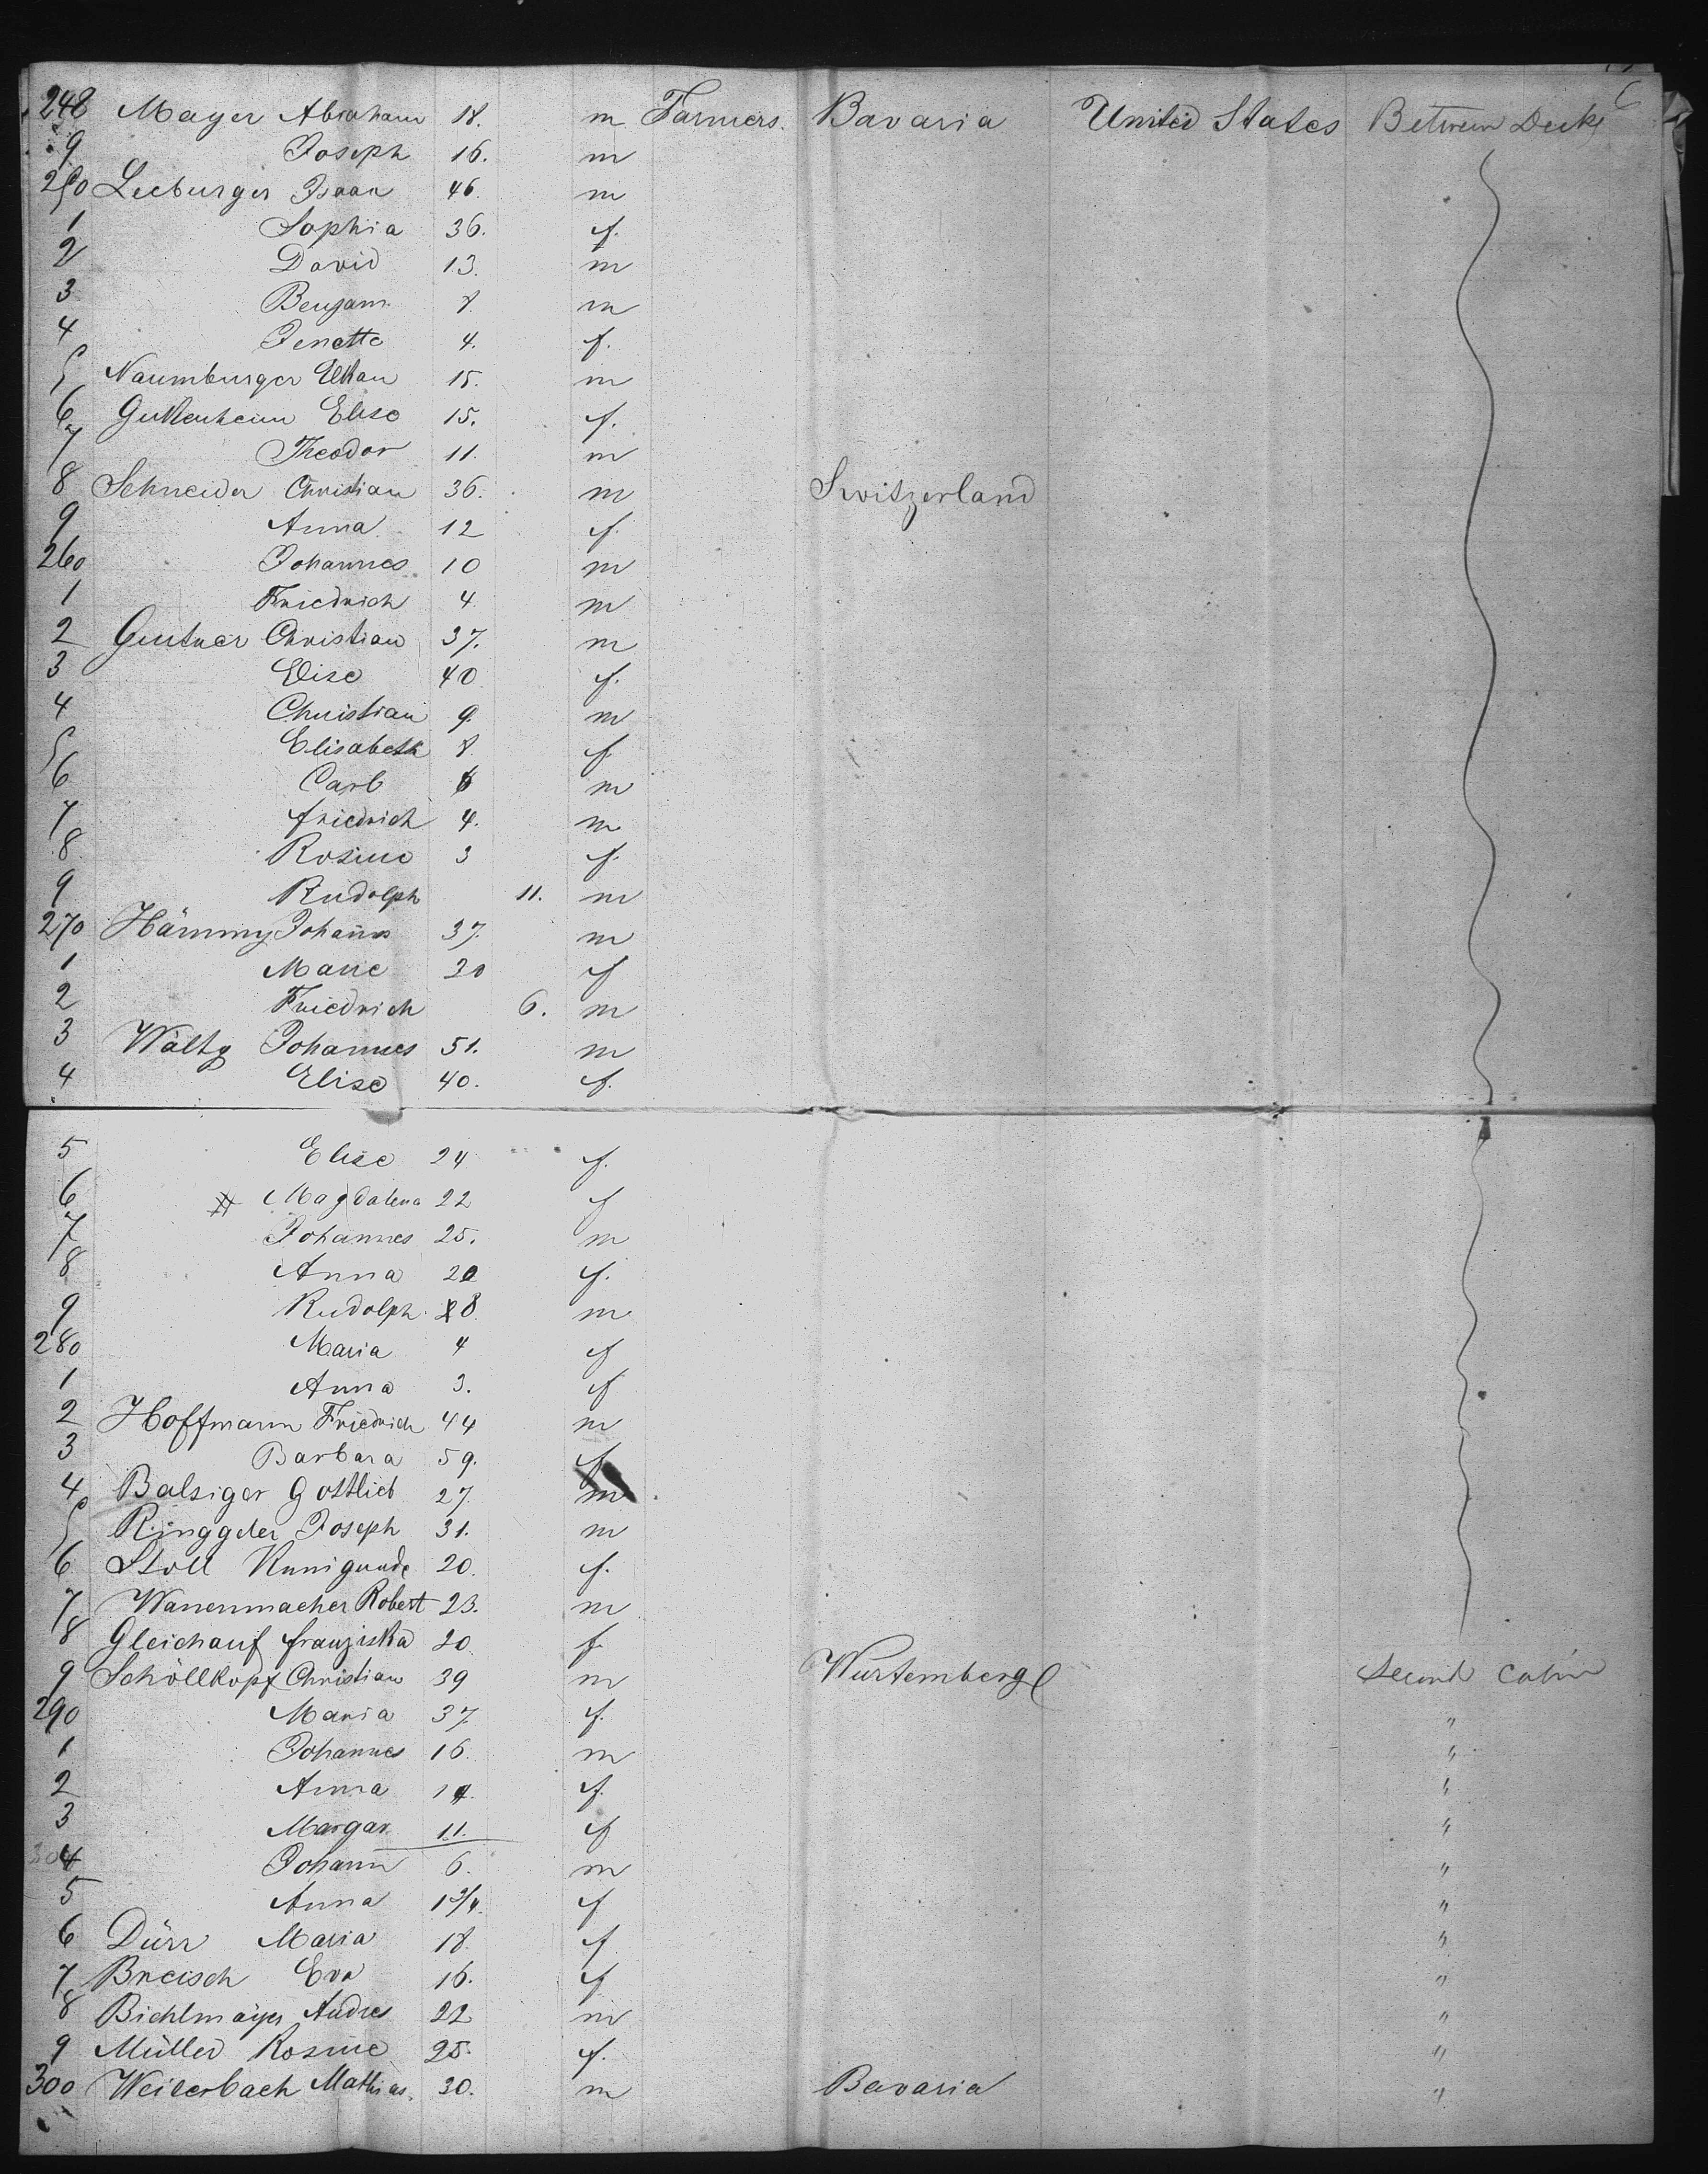 6
248 Mayer Abraham 18. m Farmers. Bavaria United States Between Decks
9 Joseph 16. m
250 Leeburger Isaac 46. m
1 Sophia 36. f.
2 David 13. m
3 Benjam. 8. m
4 Jenette 4. f.
5 Naumburger Elkan 15. m
6 Elise 15. f.
7 Theodor 11. m
8 Schneider Christian 36. m Switzerland
9 Anna 12 f.
260 Johannes 10 m
1 Friedrich 4 m
2 Christian 37. m
3 Elise 40 f.
4 Christian 9. m
5 Elisabeth 8. f
6 Carl 6 m
7 friedrich 4. m
8 Rosine 3 f.
9 Rudolph 11. m
270 Hämmy Johanns 37. m
1 Marie 20 f
2 Friedrich 6. m
3 Wälty Johannes 51. m
4 Elise 40. f.
5 Elise 24 f.
6 Magdalena 22 f
7 Johannes 25. m
8 Anna 20 f.
9 Rudolph 8 m
280 Maria 4 f
1 Anna 3. f
2 Hoffmann Friedrich 44 m
3 Barbara 59. f
4 Balsiger Gottlieb 27. m
5 Ringgeler Joseph 31. m
6 Stoll Kunigunde 20. f.
7 Wanenmacher Robert 23. m
8 Gleichauf franziska 20 f
9 Schöllkopf Christian 39 m Wurtemberg Second Cabin
290 Maria 37. f. "
1 Johannes 16. m "
2 Anna 14. f. "
3 Margar. 11. f "
4 Johann 6. m "
5 Anna 1 3/4. f "
6 Dürr Maria 18. f "
7 Breisch Eva 16. f "
8 Bichlmayer Andres 22 m "
9 Müller Rosine 25. f. "
300 Weilerbach Mathias. 30. m Bavaria "